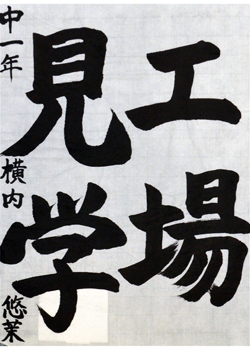 工場
見学
中一年 横内 悠茉